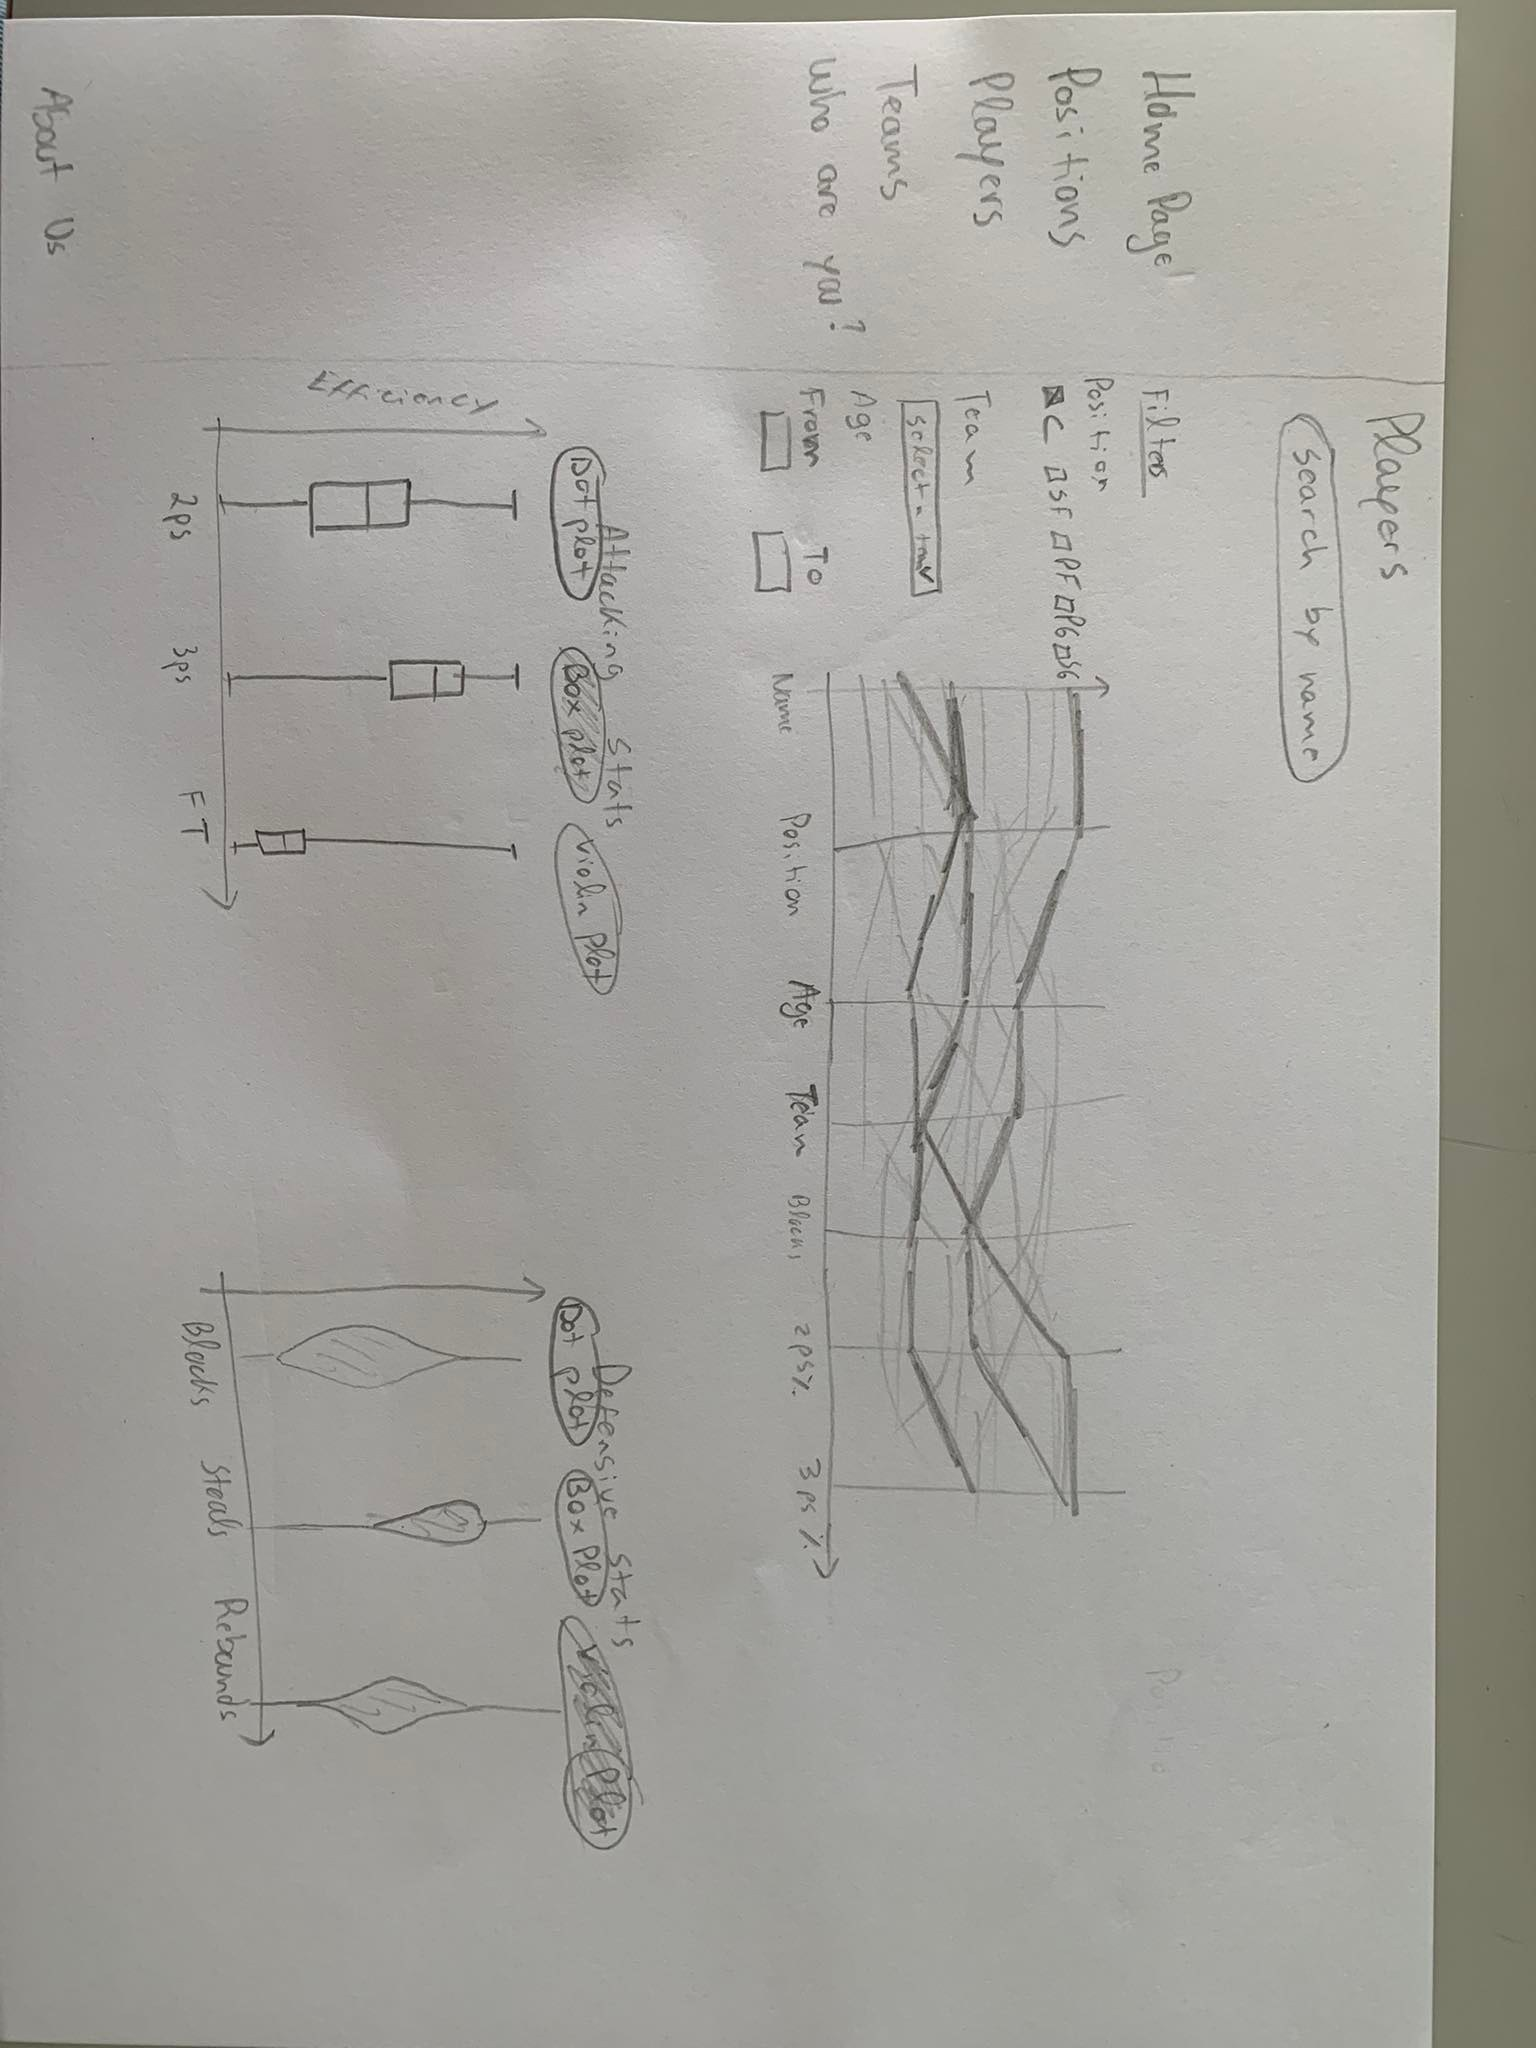 Home Page
Positions
Players
Teams
Who are you?
About Us
Players
Search by name
Filters
Position
C SF PF PG SG
Team
Select a team
Age
From To
Name Position Age Team Blocks 2ps% 3ps%
Attacking Stats
Dot plot Box plot Violin plot
Efficiency
2ps 3ps FT
Defensive Stats
Dot plot Box Plot Violin Plot
Blocks Steals Rebounds